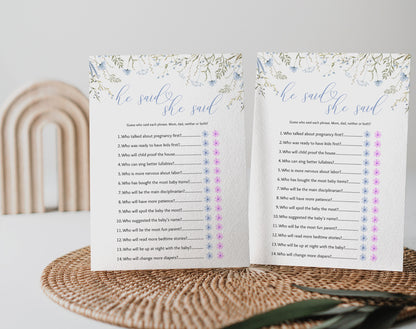 he said
she said
Guess who said each phrase. Mom, dad, neither or both?
1. Who talked about pregnancy first?
2. Who was ready to have kids first?
3. Who will child proof the house
4. Who can sing better lullabies?
5. Who is more nervous about labor?
6. Who has bought the most baby items?
7. Who will be the main disciplinarian?
8. Who will have more patience?
9. Who will spoil the baby the most?
10. Who suggested the baby's name?
11. Who will be the most fun parent?
12. Who will read more bedtime stories?
13. Who will be up at night with the baby?
14. Who will change more diapers?
he said
she said
Guess who said each phrase. Mom, dad, neither or both?
1. Who talked about pregnancy first?
2. Who was ready to have kids first?
3. Who will child proof the house
4. Who can sing better lullabies?
5. Who is more nervous about labor?
6. Who has bought the most baby items?
7. Who will be the main disciplinarian?
8. Who will have more patience?
9. Who will spoil the baby the most?
10. Who suggested the baby's name?
11. Who will be the most fun parent?
12. Who will read more bedtime stories?
13. Who will be up at night with the baby?
14. Who will change more diapers?